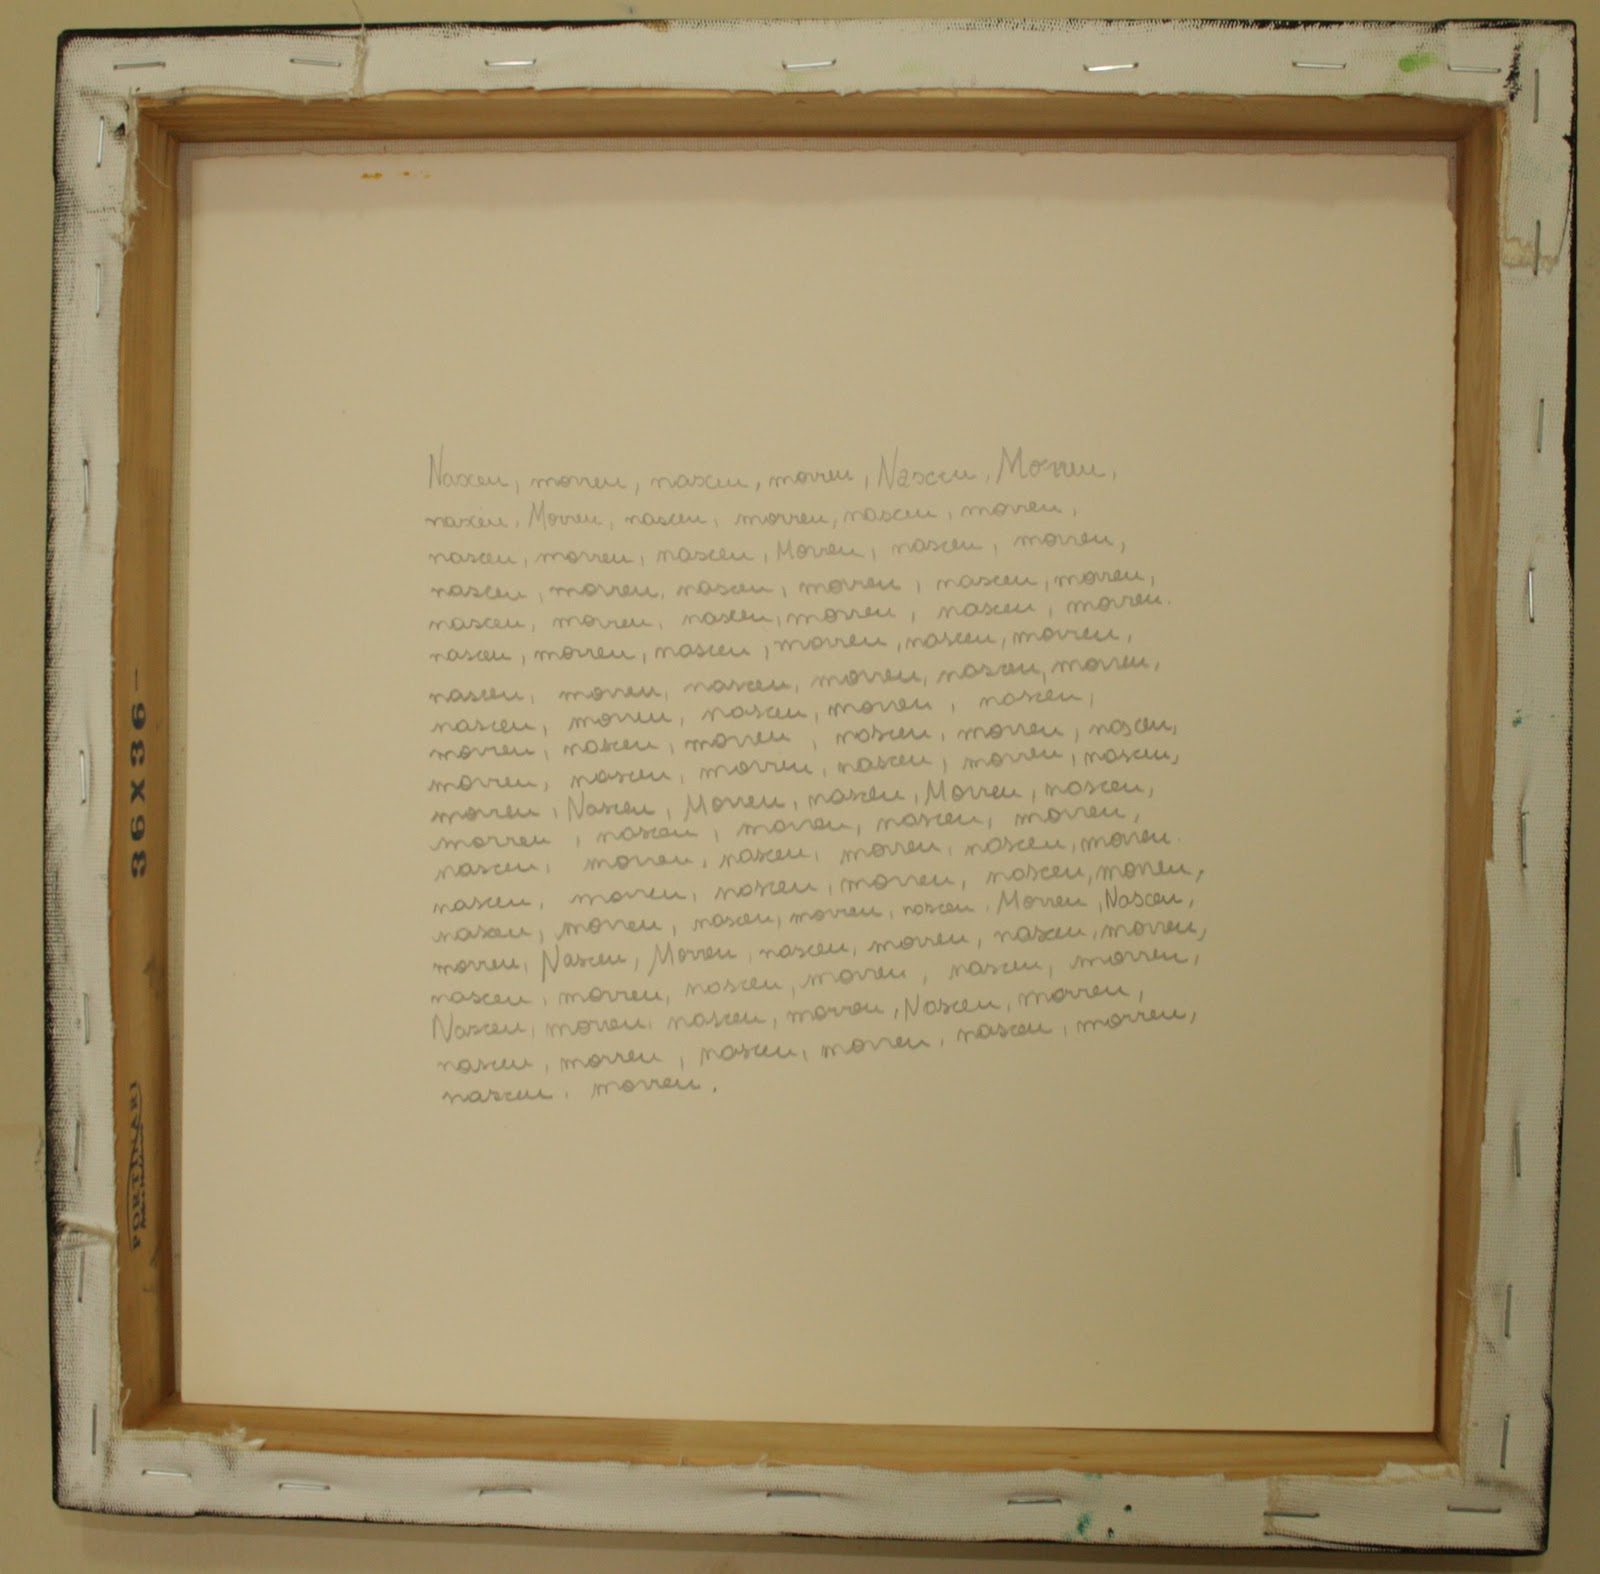 Nasceu, morreu, nasceu, morreu, Nasceu, Morreu,
nasceu, Morreu, nasceu, morreu, nasceu, morreu,
nasceu, morreu, nasceu, Morreu, nasceu, morreu,
nasceu, morreu, nasceu, morreu, nasceu, morreu,
nasceu, morreu, nasceu, morreu, nasceu, morreu.
nasceu, morreu, nasceu, morreu, nasceu, morreu,
nasceu, morreu, nasceu, morreu, nasceu, morreu,
nasceu, morreu, nasceu, morreu, nasceu,
morreu, nasceu, morreu, nasceu, morreu, nasceu,
morreu, nasceu, morreu, nasceu, morreu, nasceu,
morreu, Nasceu, Morreu, nasceu, Morreu, nasceu,
morreu, nasceu, morreu, nasceu, morreu,
nasceu, morreu, nasceu, morreu, nasceu, morreu.
nasceu, morreu, nasceu, morreu, nasceu, morreu,
nasceu, morreu, nasceu, morreu, nasceu, Morreu, Nasceu,
morreu, Nasceu, Morreu, nasceu, morreu, nasceu, morreu,
nasceu, morreu, nasceu, morreu, nasceu, morreu,
Nasceu, morreu, nasceu, morreu, Nasceu, morreu,
nasceu, morreu, nasceu, morreu, nasceu, morreu,
nasceu, morreu.
36 X 36
PORTINARI